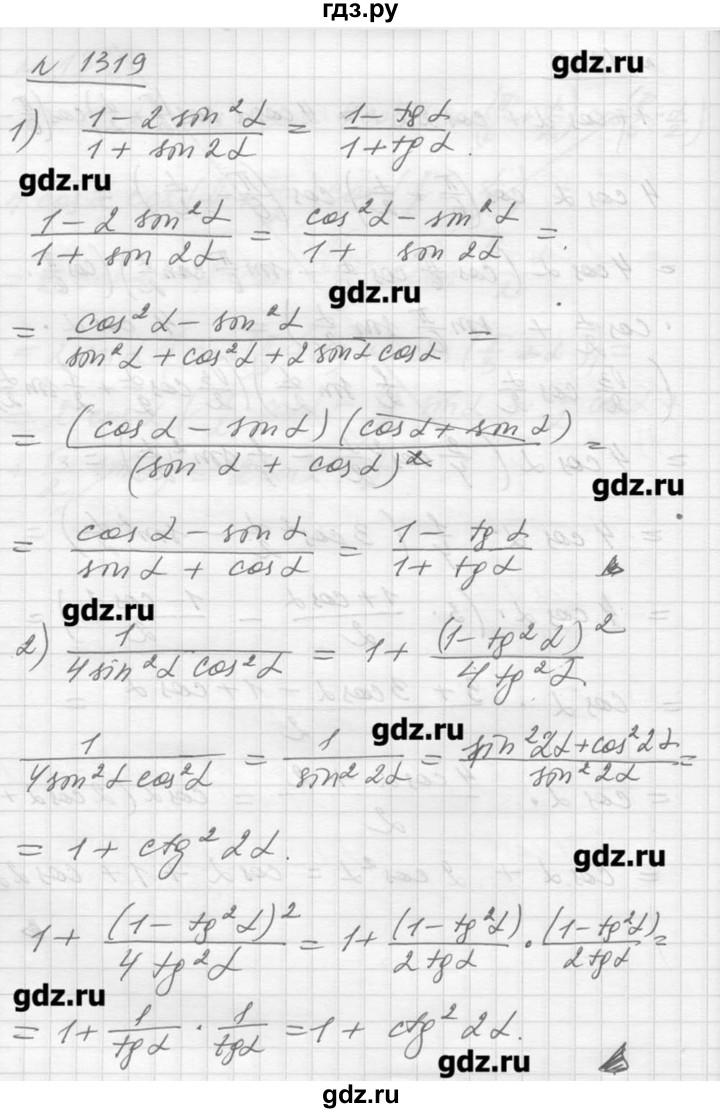 гдз.ру
№ 1319
gdz.ru
1) (1 - 2 sin²α)/(1 + sin 2α) = (1 - tg α)/(1 + tg α).
gdz.ru
(1 - 2 sin²α)/(1 + sin 2α) = (cos²α - sin²α)/(1 + sin 2α) =
gdz.ru
= (cos²α - sin²α)/(sin²α + cos²α + 2 sinα cosα) =
= (cosα - sinα)(cosα + sinα)/(sinα + cosα)² =
gdz.ru
= (cosα - sinα)/(sinα + cosα) = (1 - tgα)/(1 + tgα)
gdz.ru
2) 1/(4 sin²α cos²α) = 1 + (1 - tg²α)²/(4 tg²α).
gdz.ru
1/(4 sin²α cos²α) = 1/(sin² 2α) = (sin² 2α + cos² 2α)/(sin² 2α) =
= 1 + ctg² 2α.
gdz.ru
1 + (1 - tg²α)²/(4 tg²α) = 1 + (1 - tg²α)/(2 tgα) · (1 - tg²α)/(2 tgα) =
gdz.ru
= 1 + 1/(tgα) · 1/(tgα) = 1 + ctg² 2α.
gdz.ru
gdz.ru